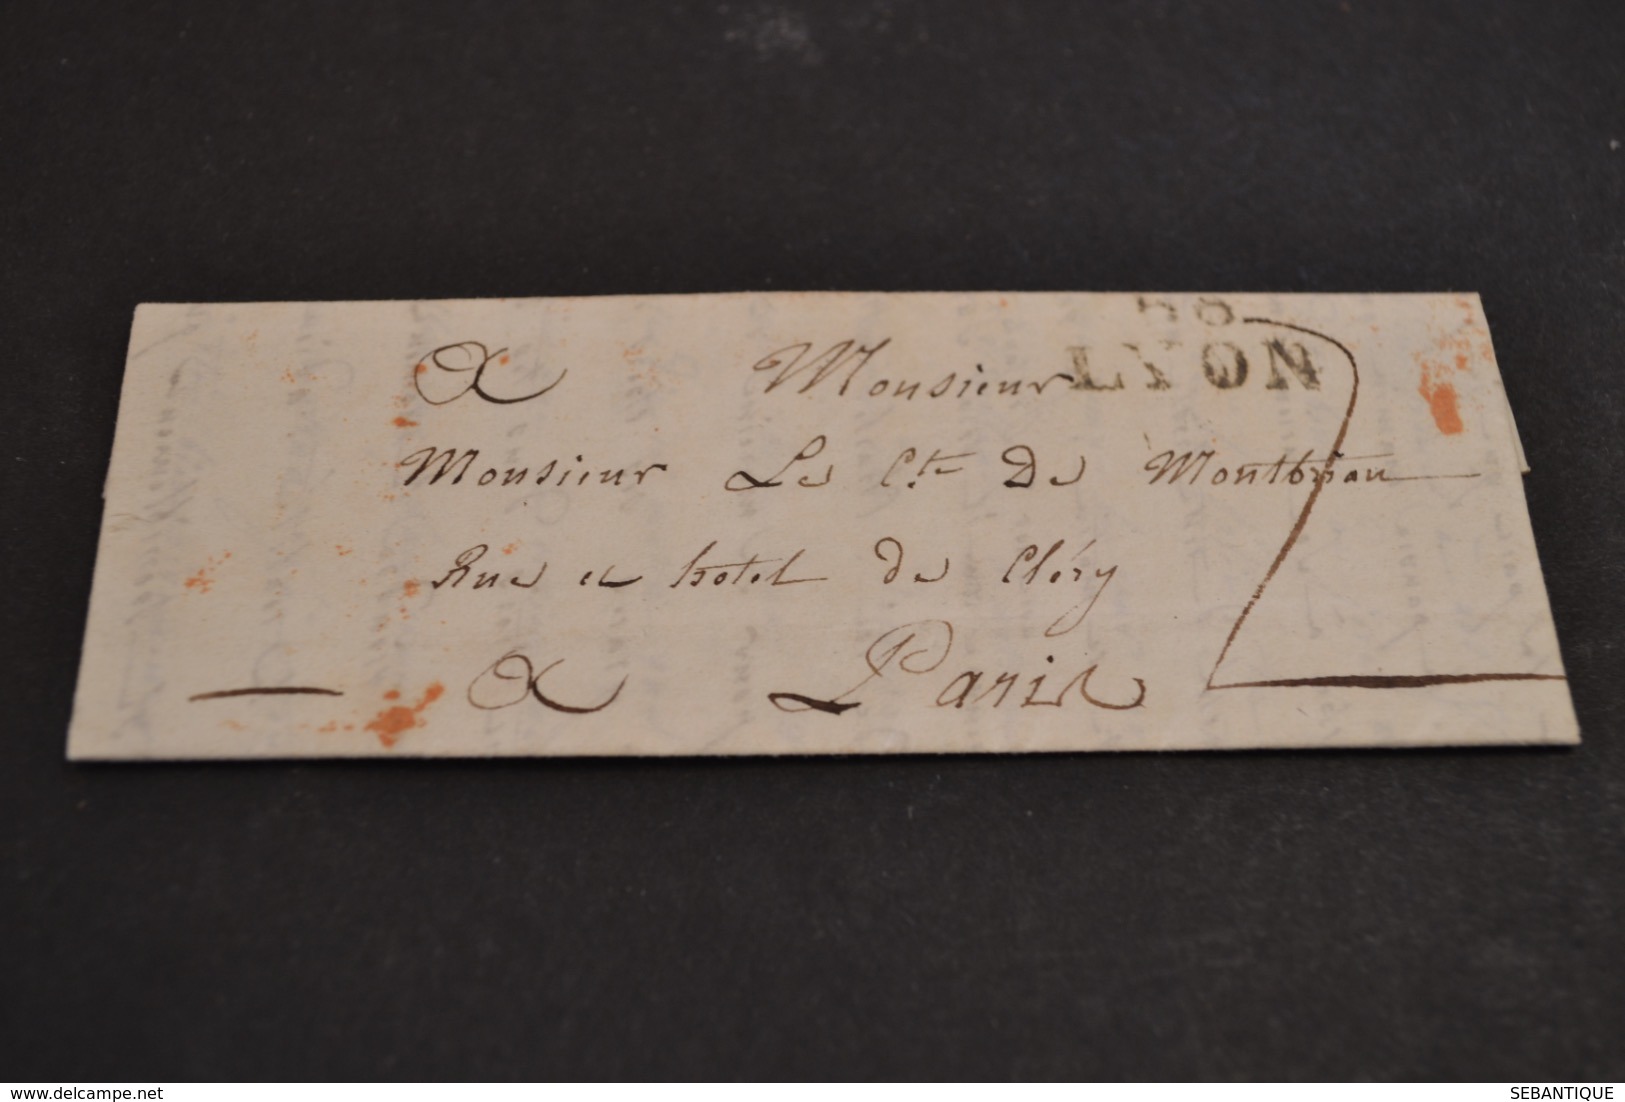 68
LYON
A Monsieur
Monsieur Le Cte De Montbrian
Rue et hotel de Cléry
A Paris
7
www.delcampe.net
SEBANTIQUE